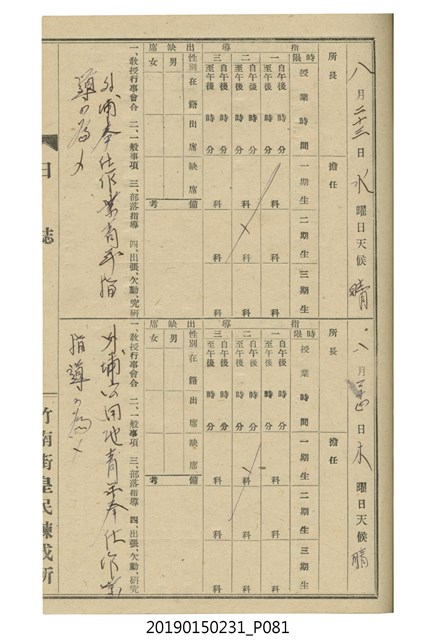 八月二十三日水曜日天候晴
所長
擔任
指導
時限 授業時間 一期生 二期生 三期生
一 自午後 時 分 至午後 時 分 科 科 科
二 自午後 時 分 至午後 時 分 科 科 科
三 自午後 時 分 至午後 時 分 科 科 科
出缺席
性別 在籍 出席 缺席 備考
男
女
一、敎授行事會合 二、一般事項 三、部落指導 四、出張、欠勤、究研
外埔奉仕作業靑年指
導ノ為メ
日誌
八月二十四日木曜日天候晴
所長
擔任
指導
時限 授業時間 一期生 二期生 三期生
一 自午後 時 分 至午後 時 分 科 科 科
二 自午後 時 分 至午後 時 分 科 科 科
三 自午後 時 分 至午後 時 分 科 科 科
出缺席
性別 在籍 出席 缺席 備考
男
女
一、敎授行事會合 二、一般事項 三、部落指導 四、出張、欠勤、究研
外埔公田地靑年奉仕作業
指導ノ為メ
竹南街皇民鍊成所
20190150231_P081